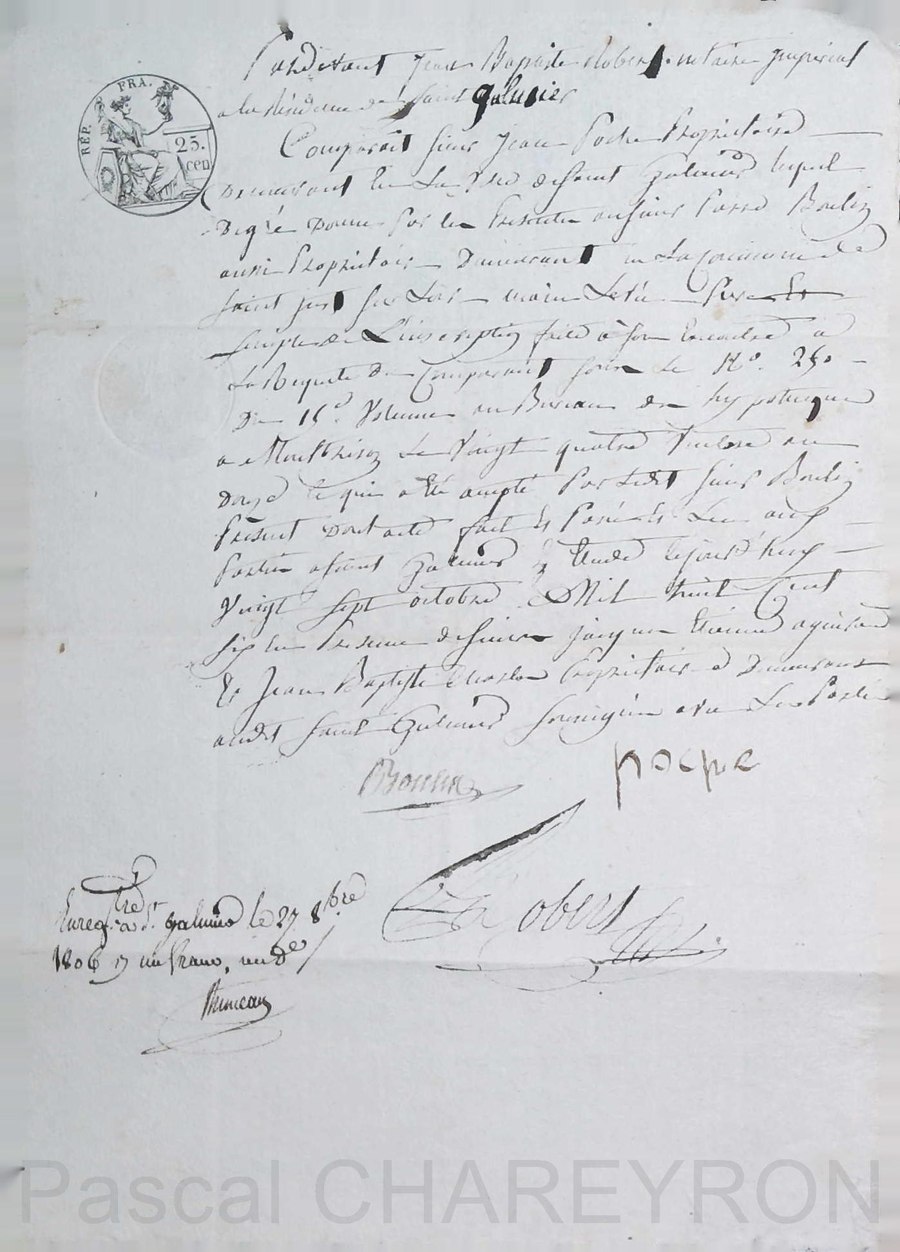 RÉP. FRA.
25.
cen
Pardevant Jean Baptiste Robert notaire impérial
a la Résidence de Saint galmier
Comparait Sieur Jean Poche Propriétaire
Demeurant En La de Saint Galmier lequel
De gré Donne Par les Présentes au Sieur Boulin
aussi Propriétaire Demeurant en La Commune de
Saint just Sur Loire main Levée Pure Et
Simple de L'inscription faite à Son Encontre a
La Requete du Comparant Sous Le N°. 250
Du 15e Volume au Bureau des hypoteques
a Montbrison Le Vingt quatre an
Douze ce qui a Eté accepté Par Ledit Sieur Boulin
Présent Dont acte fait Et Passé Les
Parties a Saint Galmier Etude cejourd'huy
Vingt Sept octobre Mil huit Cent
Six En Présence de Sieurs jacques Etienne
Et Jean Baptiste Propriétaires Demeurant
audit Saint Galmier Soussignés avec Les Parties
Boulin
poche
Robert
Enregtré a St galmier le 27 8bre
1806 Rç un franc, un de